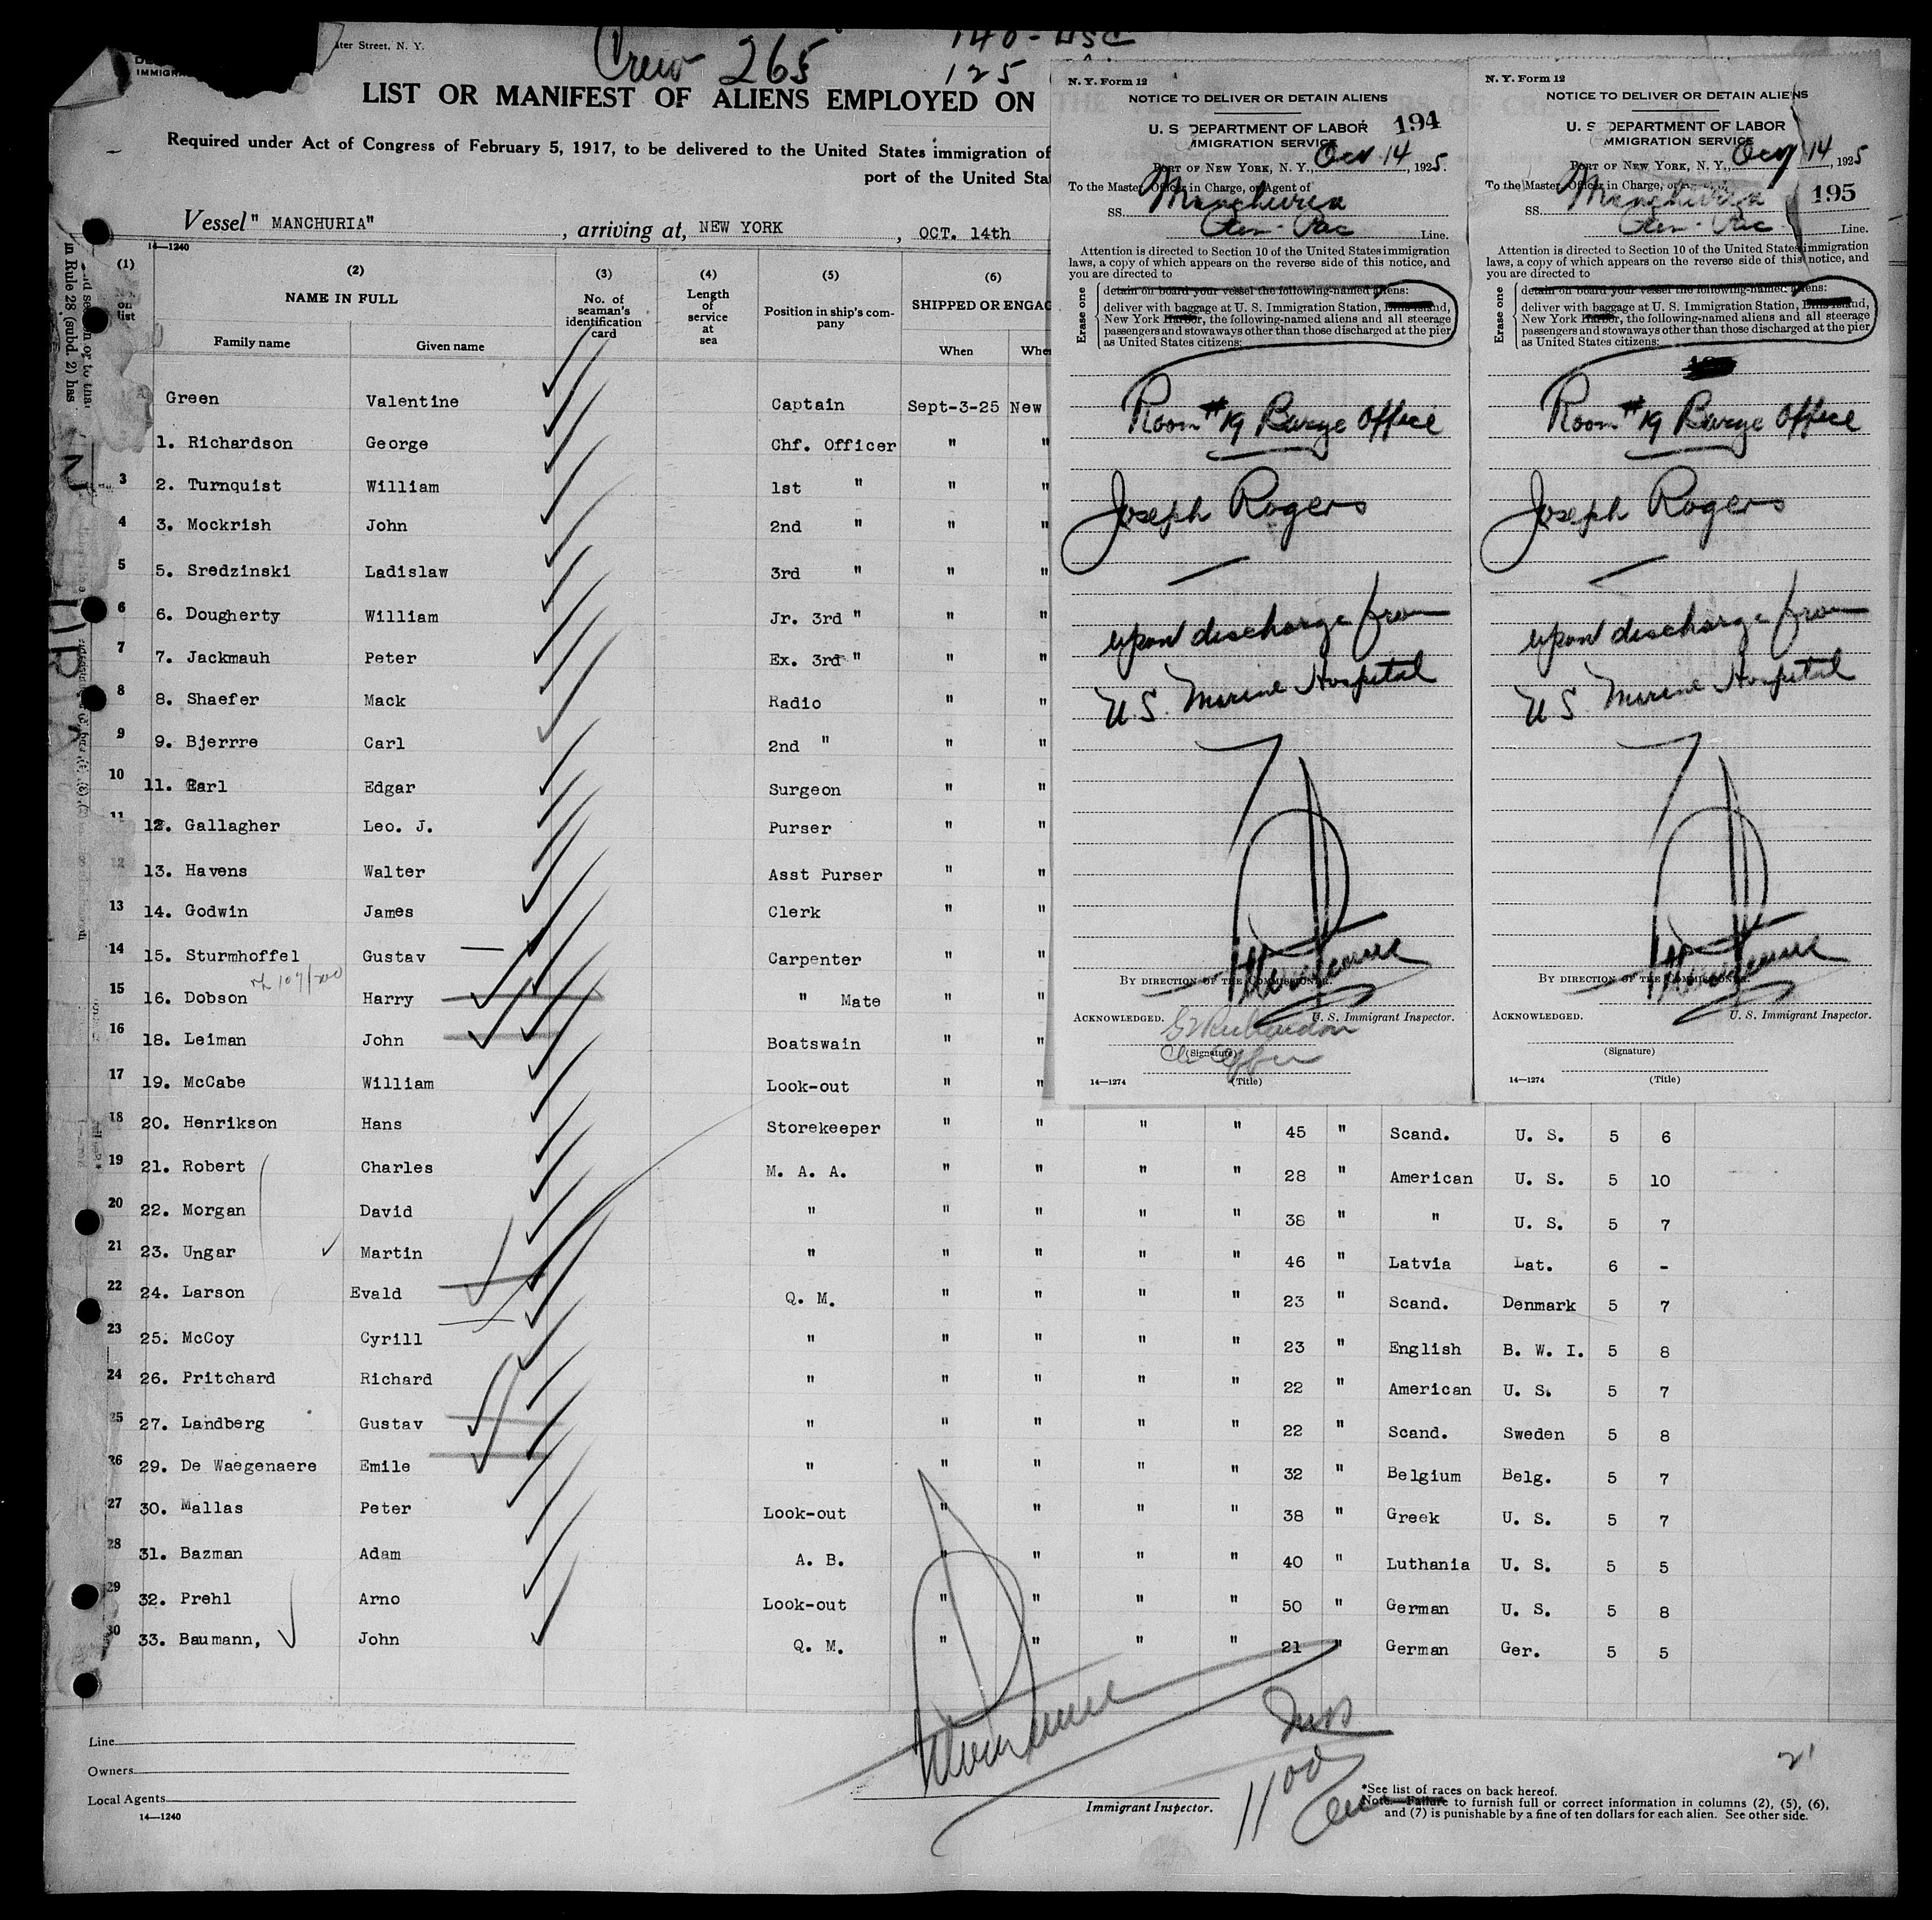 ater Street, N. Y.
Crew 265
140 - USC
125
IMMIGRA
LIST OR MANIFEST OF ALIENS EMPLOYED ON
Required under Act of Congress of February 5, 1917, to be delivered to the United States immigration of
port of the United Sta
Vessel " MANCHURIA" , arriving at, NEW YORK , OCT. 14th
14—1240
(1) (2) (3) (4) (5) (6)
on list NAME IN FULL No. of seaman's identification card Length of service at sea Position in ship's company SHIPPED OR ENGAG
Family name Given name When Whe
Green Valentine Captain Sept-3-25 New
1. Richardson George Chf. Officer " "
3 2. Turnquist William 1st " " "
4 3. Mockrish John 2nd " " "
5 5. Sredzinski Ladislaw 3rd " " "
6 6. Dougherty William Jr. 3rd " " "
7 7. Jackmauh Peter Ex. 3rd " " "
8 8. Shaefer Mack Radio " "
9 9. Bjerrre Carl 2nd " " "
10 11. Earl Edgar Surgeon " "
11 12. Gallagher Leo. J. Purser " "
12 13. Havens Walter Asst Purser " "
13 14. Godwin James Clerk " "
14 15. Sturmhoffel Gustav Carpenter " "
15 16. Dobson Harry " Mate " "
16 18. Leiman John Boatswain " "
17 19. McCabe William Look-out " "
18 20. Henrikson Hans Storekeeper " " " " 45 " Scand. U. S. 5 6
19 21. Robert Charles M. A. A. " " " " 28 " American U. S. 5 10
20 22. Morgan David " " " " " 38 " " U. S. 5 7
21 23. Ungar Martin " " " " " 46 " Latvia Lat. 6 -
22 24. Larson Evald Q. M. " " " " 23 " Scand. Denmark 5 7
23 25. McCoy Cyrill " " " " " 23 " English B. W. I. 5 8
24 26. Pritchard Richard " " " " " 22 " American U. S. 5 7
25 27. Landberg Gustav " " " " " 22 " Scand. Sweden 5 8
26 29. De Waegenaere Emile " " " " " 32 " Belgium Belg. 5 7
27 30. Mallas Peter Look-out " " " " 38 " Greek U. S. 5 7
28 31. Bazman Adam A. B. " " " " 40 " Luthania U. S. 5 5
29 32. Prehl Arno Look-out " " " " 50 " German U. S. 5 8
30 33. Baumann, John Q. M. " " " " 21 " German Ger. 5 5
Line
Owners
Local Agents
14—1240
Immigrant Inspector.
1100
21
*See list of races on back hereof.
Note.—Failure to furnish full or correct information in columns (2), (5), (6),
and (7) is punishable by a fine of ten dollars for each alien. See other side.
in Rule 28 (subd. 2) has
N. Y. Form 12
NOTICE TO DELIVER OR DETAIN ALIENS
U. S DEPARTMENT OF LABOR 194
IMMIGRATION SERVICE
PORT OF NEW YORK, N. Y., Oct 14, 1925.
To the Master, Officer in Charge, or Agent of
SS. Manchuria
Line.
Attention is directed to Section 10 of the United States immigration
laws, a copy of which appears on the reverse side of this notice, and
you are directed to
Erase one
detain on board your vessel the following-named aliens:
deliver with baggage at U. S. Immigration Station, Ellis Island,
New York Harbor, the following-named aliens and all steerage
passengers and stowaways other than those discharged at the pier
as United States citizens:
Room #19 Barge Office
Joseph Rogers
upon discharge from
U S. Marine Hospital
BY DIRECTION OF THE COMMISSIONER.
ACKNOWLEDGED. U. S. Immigrant Inspector.
G Richardson
(Signature)
Ch Officer
14—1274 (Title)
N. Y. Form 12
NOTICE TO DELIVER OR DETAIN ALIENS
U. S DEPARTMENT OF LABOR
IMMIGRATION SERVICE
PORT OF NEW YORK, N. Y., Oct 14, 1925
To the Master, Officer in Charge, or 195
SS. Manchuria
Line.
Attention is directed to Section 10 of the United States immigration
laws, a copy of which appears on the reverse side of this notice, and
you are directed to
Erase one
detain on board your vessel the following-named aliens:
deliver with baggage at U. S. Immigration Station, Ellis Island,
New York Harbor, the following-named aliens and all steerage
passengers and stowaways other than those discharged at the pier
as United States citizens:
Room #19 Barge Office
Joseph Rogers
upon discharge from
U S. Marine Hospital
BY DIRECTION OF THE COMMISSIONER.
ACKNOWLEDGED. U. S. Immigrant Inspector.
(Signature)
14—1274 (Title)